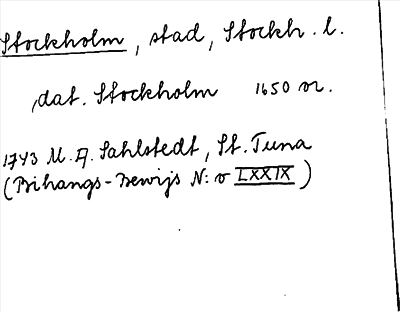 Stockholm, stad, Stockh. l.
dat. Stockholm 1650 m.
1743 M. A. Sahlstedt, St. Tuna
(Bihangs-Bewijs N:o LXXIX)